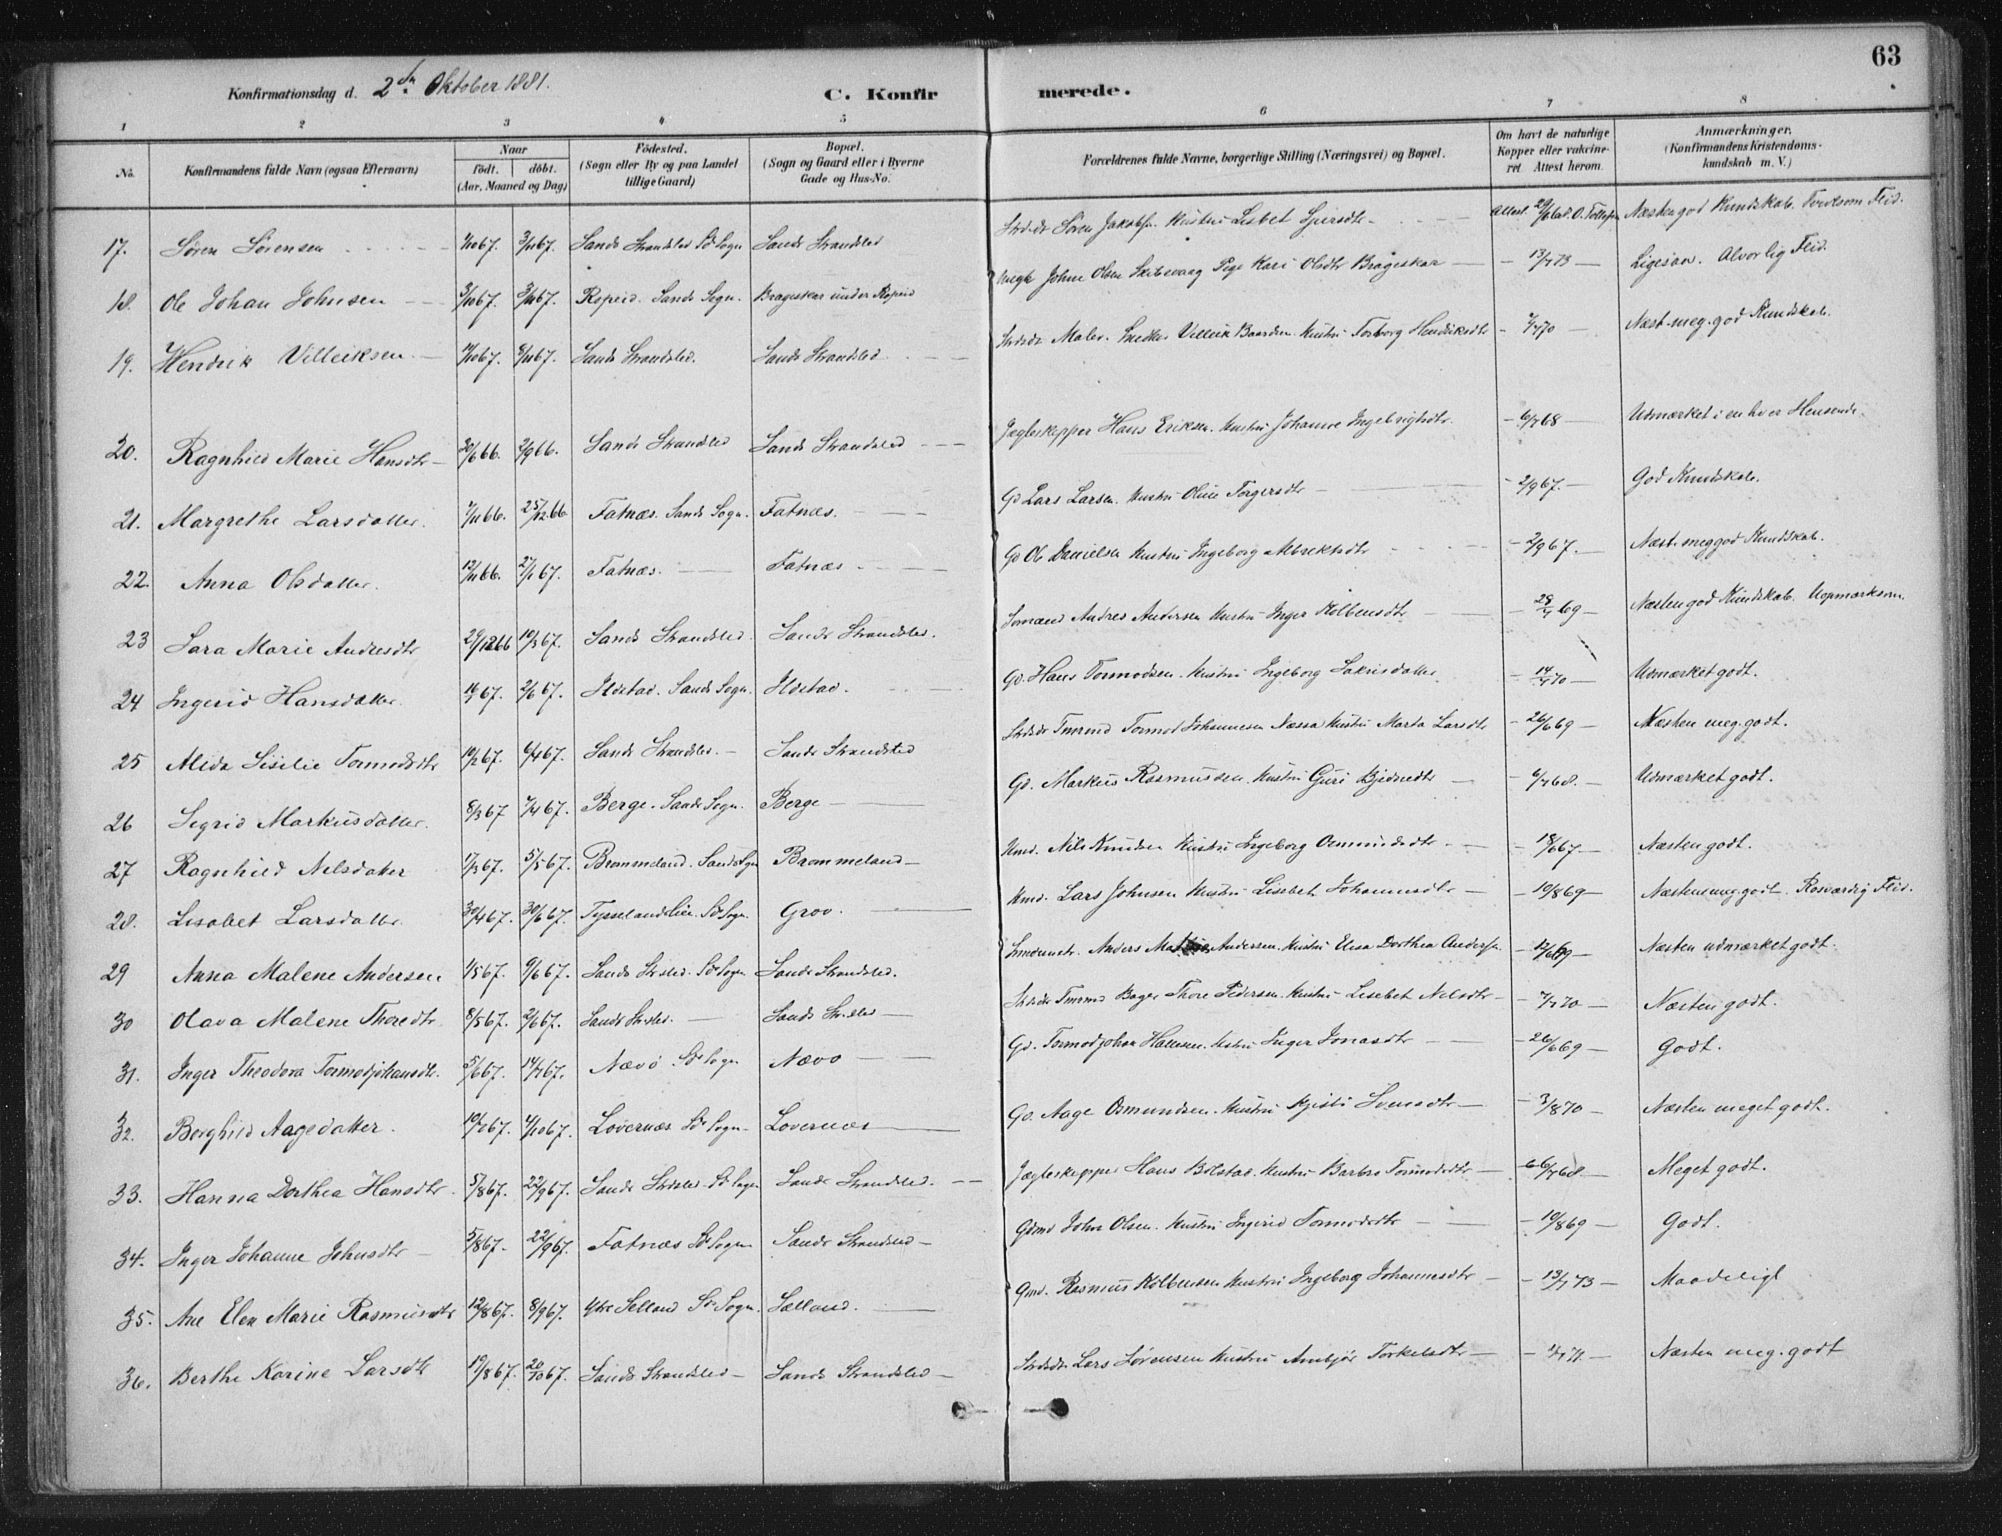 63
Konfirmationsdag d. 2den Oktober 1881.
C. Konfirmerede.
1 2 3 4 5 6 7 8
No. Konfirmandens fulde Navn (ogsaa Efternavn) Naar født. døbt. (Aar, Maaned og Dag) Fødested. (Sogn eller By og paa Landet tillige Gaard) Bopæl. (Sogn og Gaard eller i Byerne Gade og Hus-No. Forældrenes fulde Navne, borgerlige Stilling (Næringsvei) og Bopæl. Om havt de naturlige Kopper eller vakcineret Attest herom. Anmærkninger. (Konfirmandens Kristendomskundskab m. V.)
17. Søren Sørensen 3/11 67. Sands Strandsted Sds Sogn Sands Strandsted Søren Jakobsen Hustru Lisbet Næsten god Kundskab. Flid.
18. Ole Johan Johnsen 3/10 67. 3/11 67. Ropeid. Sands Sogn. Brageskar under Ropeid John Olsen Pige Kari Olsdtr Brageskar 13/7 73 Ligesaa. Alvorlig Flid.
19. Hendrik Villeiksen Sands Strandsted. Sands Strandsted Maler. Snedker Villeik Baardsen Hustru Torborg Hendriksdtr 70 Næst. meg. god Kundskab.
20. Ragnhild Marie Hansdtr 20/6 66. 2/9 66. Sands Strandsted Sands Strandsted Jægteskipper Hans Eriksen. Hustru Johanne Ingebrigtsdtr 6/7 68 Udmærket i enhver Henseende.
21. Margrethe Larsdatter. 25/12 66 Fatnæs. Sands Sogn. Fatnæs. Gd Lars Larsen. Hustru Oline Torgersdtr 2/9 67. God Kundskab.
22. Anna Olsdatter. 12/11 66. 27/1 67. Fatnæs. Fatnæs Gd Ole Danielsen Hustru Ingeborg Albrektsdtr 2/9 67. Næst. meg god Kundskab.
23 Sara Marie Andresdtr 29/12 66 10/3 67. Sands Strandsted. Sands Strandsted. Sømand Andres Andersen Hustru Inger Kolbensdtr 28/7 69 Næsten god Kundskab. Uopmærksom.
24 Ingerid Hansdatter. 67. 2/6 67. Ilstad. Sands Sogn. Ilstad. Gd. Hans Tormodsen. Hustru Ingeborg Sakrisdatter 14/7 70 Udmærket godt.
25 Alida Siselie Tormodsdtr 10/2 67. 67. Sands Strandsted. Sands Strandsted Tormod Johannesen Næssa Hustru Marta Larsdtr 26/6 69 Næsten meg. godt.
26 Sigrid Markusdatter. 8/3 67 7/4 67. Berge. Sands Sogn. Berge Gd. Markus Rasmussen. Hustru Guri 6/7 68. Udmærket godt.
27 Ragnhild Nilsdatter 17/3 67. 5/5 67. Brommeland. Sands Sogn Brommeland Hmd. Nils Knudsen Hustru Ingeborg Osmundsdtr. 18/6 67. Næsten godt.
28. Lisabet Larsdatter 30/4 67. 30/6 67. Sds Sogn. Grov. Hmd. Lars Johnsen Hustru Lisebet Johannesdtr 10/8 69 Næsten meg godt. Rosværdig Flid.
29 Anna Malene Andersen 1/5 67. 9/6 67. Sands Strsted. Sds Sogn. Sands Strandsted. Anders Andersen. Hustru Elisa Dorthea 12/6 69 Næsten udmærket godt.
30 Olava Malene Thoredtr 8/5 67. 2/6 67. Sands Strsted. Sands Strsted Bager Thore Pedersen. Hustru Lisebet Nilsdtr 7/7 70 Næsten godt.
31. Inger Theodora Tormodjohansdtr. 5/6 67. 14/7 67. Nævø Sds Sogn Nævø Gd. Tormodjohan Hallesen. Hustru Inger Jonasdtr 26/6 69 Godt.
32. Borghild Aagedatter. 4/10 67. Lovernæs Sds Sogn Lovernæs Gd. Aage Osmundsen. Hustru Kjisti 3/8 70 Næsten meget godt.
33. Hanna Dorthea Hansdtr. 5/8 67. 22/9 67. Sands Strsted. Sds Sogn Sands Strandsted. Jægteskipper Hans Bolstad. Hustru Barbro Tormodsdtr 6/7 68. Meget godt.
34. Inger Johanne Johnsdtr 5/8 67. 22/9 67. Fatnæs Sds Sogn Sands Strandsted Gdmd John Olsen. Hustru Ingerid Tormodsdtr 10/8 69 Godt.
35. Ane Elen Marie Rasmusdtr 12/8 67. 8/9 67. Ytre Selland Sds Sogn. Sælland. Gmd. Rasmus Kolbensen Hustru Ingeborg Johannesdtr 13/7 73 Maadeligt
36. Berthe Karine Larsdtr 19/8 67. 20/10 67. Sands Strandsted Sands Strandsted Lars Sørensen Hustru Anbjør Torkelsdtr 71. Næsten meg. godt